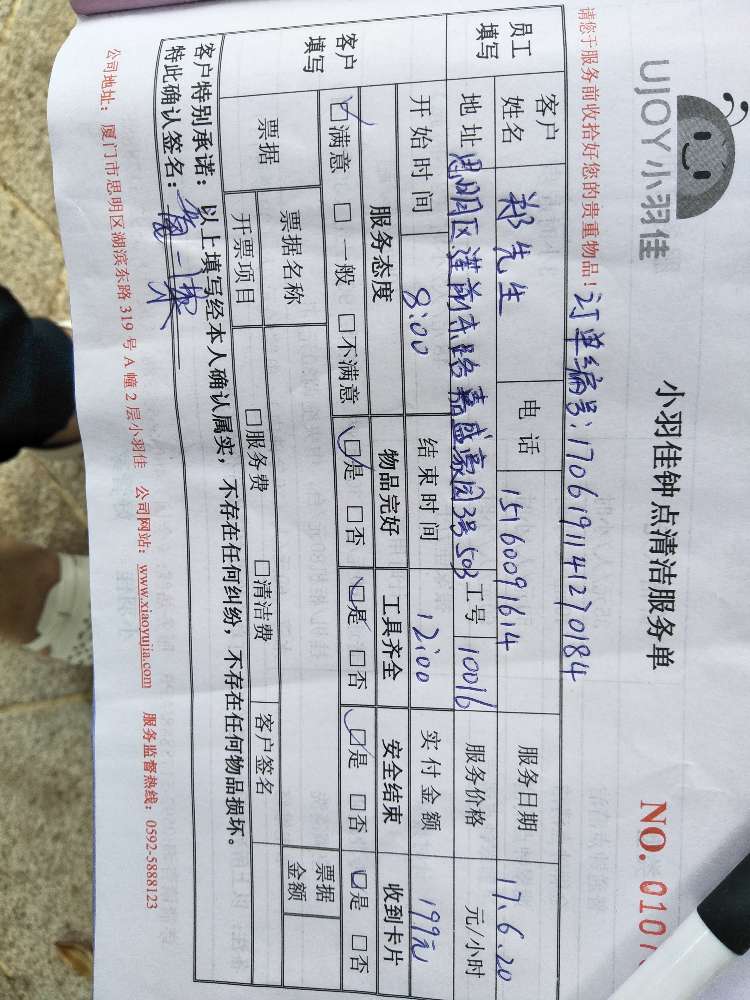 UJOY小羽佳
小羽佳钟点清洁服务单
NO. 0107
请您于服务前收拾好您的贵重物品!
订单编号:170619114127 0184
员工填写
客户姓名 郑先生 电话 15160091614 服务日期 17.6.20
地址 思明区莲前东路嘉盛豪园3号503 工号 10016 服务价格 元/小时
开始时间 8:00 结束时间 12:00 实付金额 199元
客户填写
服务态度 物品完好 工具齐全 安全结束 收到卡片
☑满意 □一般 □不满意 ☑是 □否 ☑是 □否 ☑是 □否 ☑是 □否
票据 票据名称 票据金额
开票项目 □服务费 □清洁费 客户签名
客户特别承诺:以上填写经本人确认属实,不存在任何纠纷,不存在任何物品损坏。
特此确认签名:
公司地址:厦门市思明区湖滨东路319号A幢2层小羽佳 公司网站:www.xiaoyujia.com 服务监督热线:0592-5888123